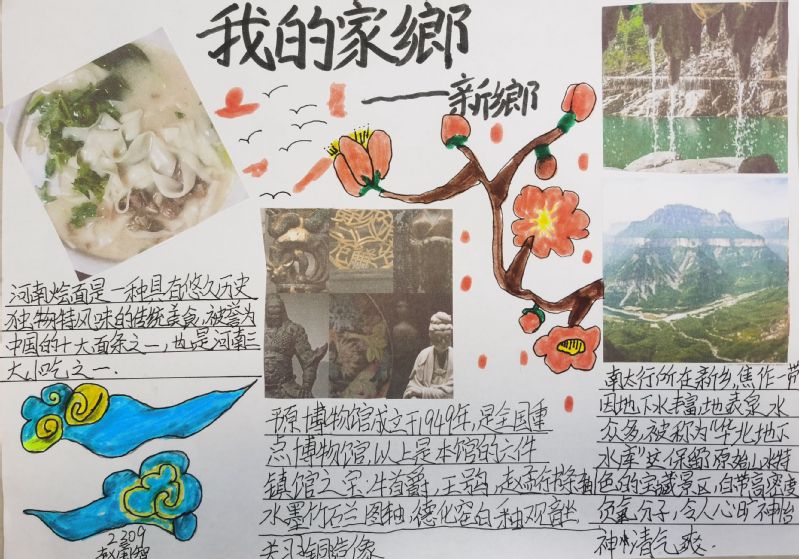 我的家鄉
——新鄉
河南烩面是一种具有悠久历史
独物特风味的传统美食,被誉为
中国的十大面条之一,也是河南三
大小吃之一.
平原博物馆成立于1949年,是全国重
点博物馆,以上是本馆的六件
镇馆之宝:牛首爵,玉鹗,赵孟
水墨竹石兰图轴,德化窑白釉观音
关羽铜造像
南太行所在新乡,焦作一带
因地下水丰富,地表泉水
众多,被称为"华北地下
水库"是保留原始山水特
色的宝藏景区,自带高密度
负氧离子,令人心旷神怡
神清气爽.
2309